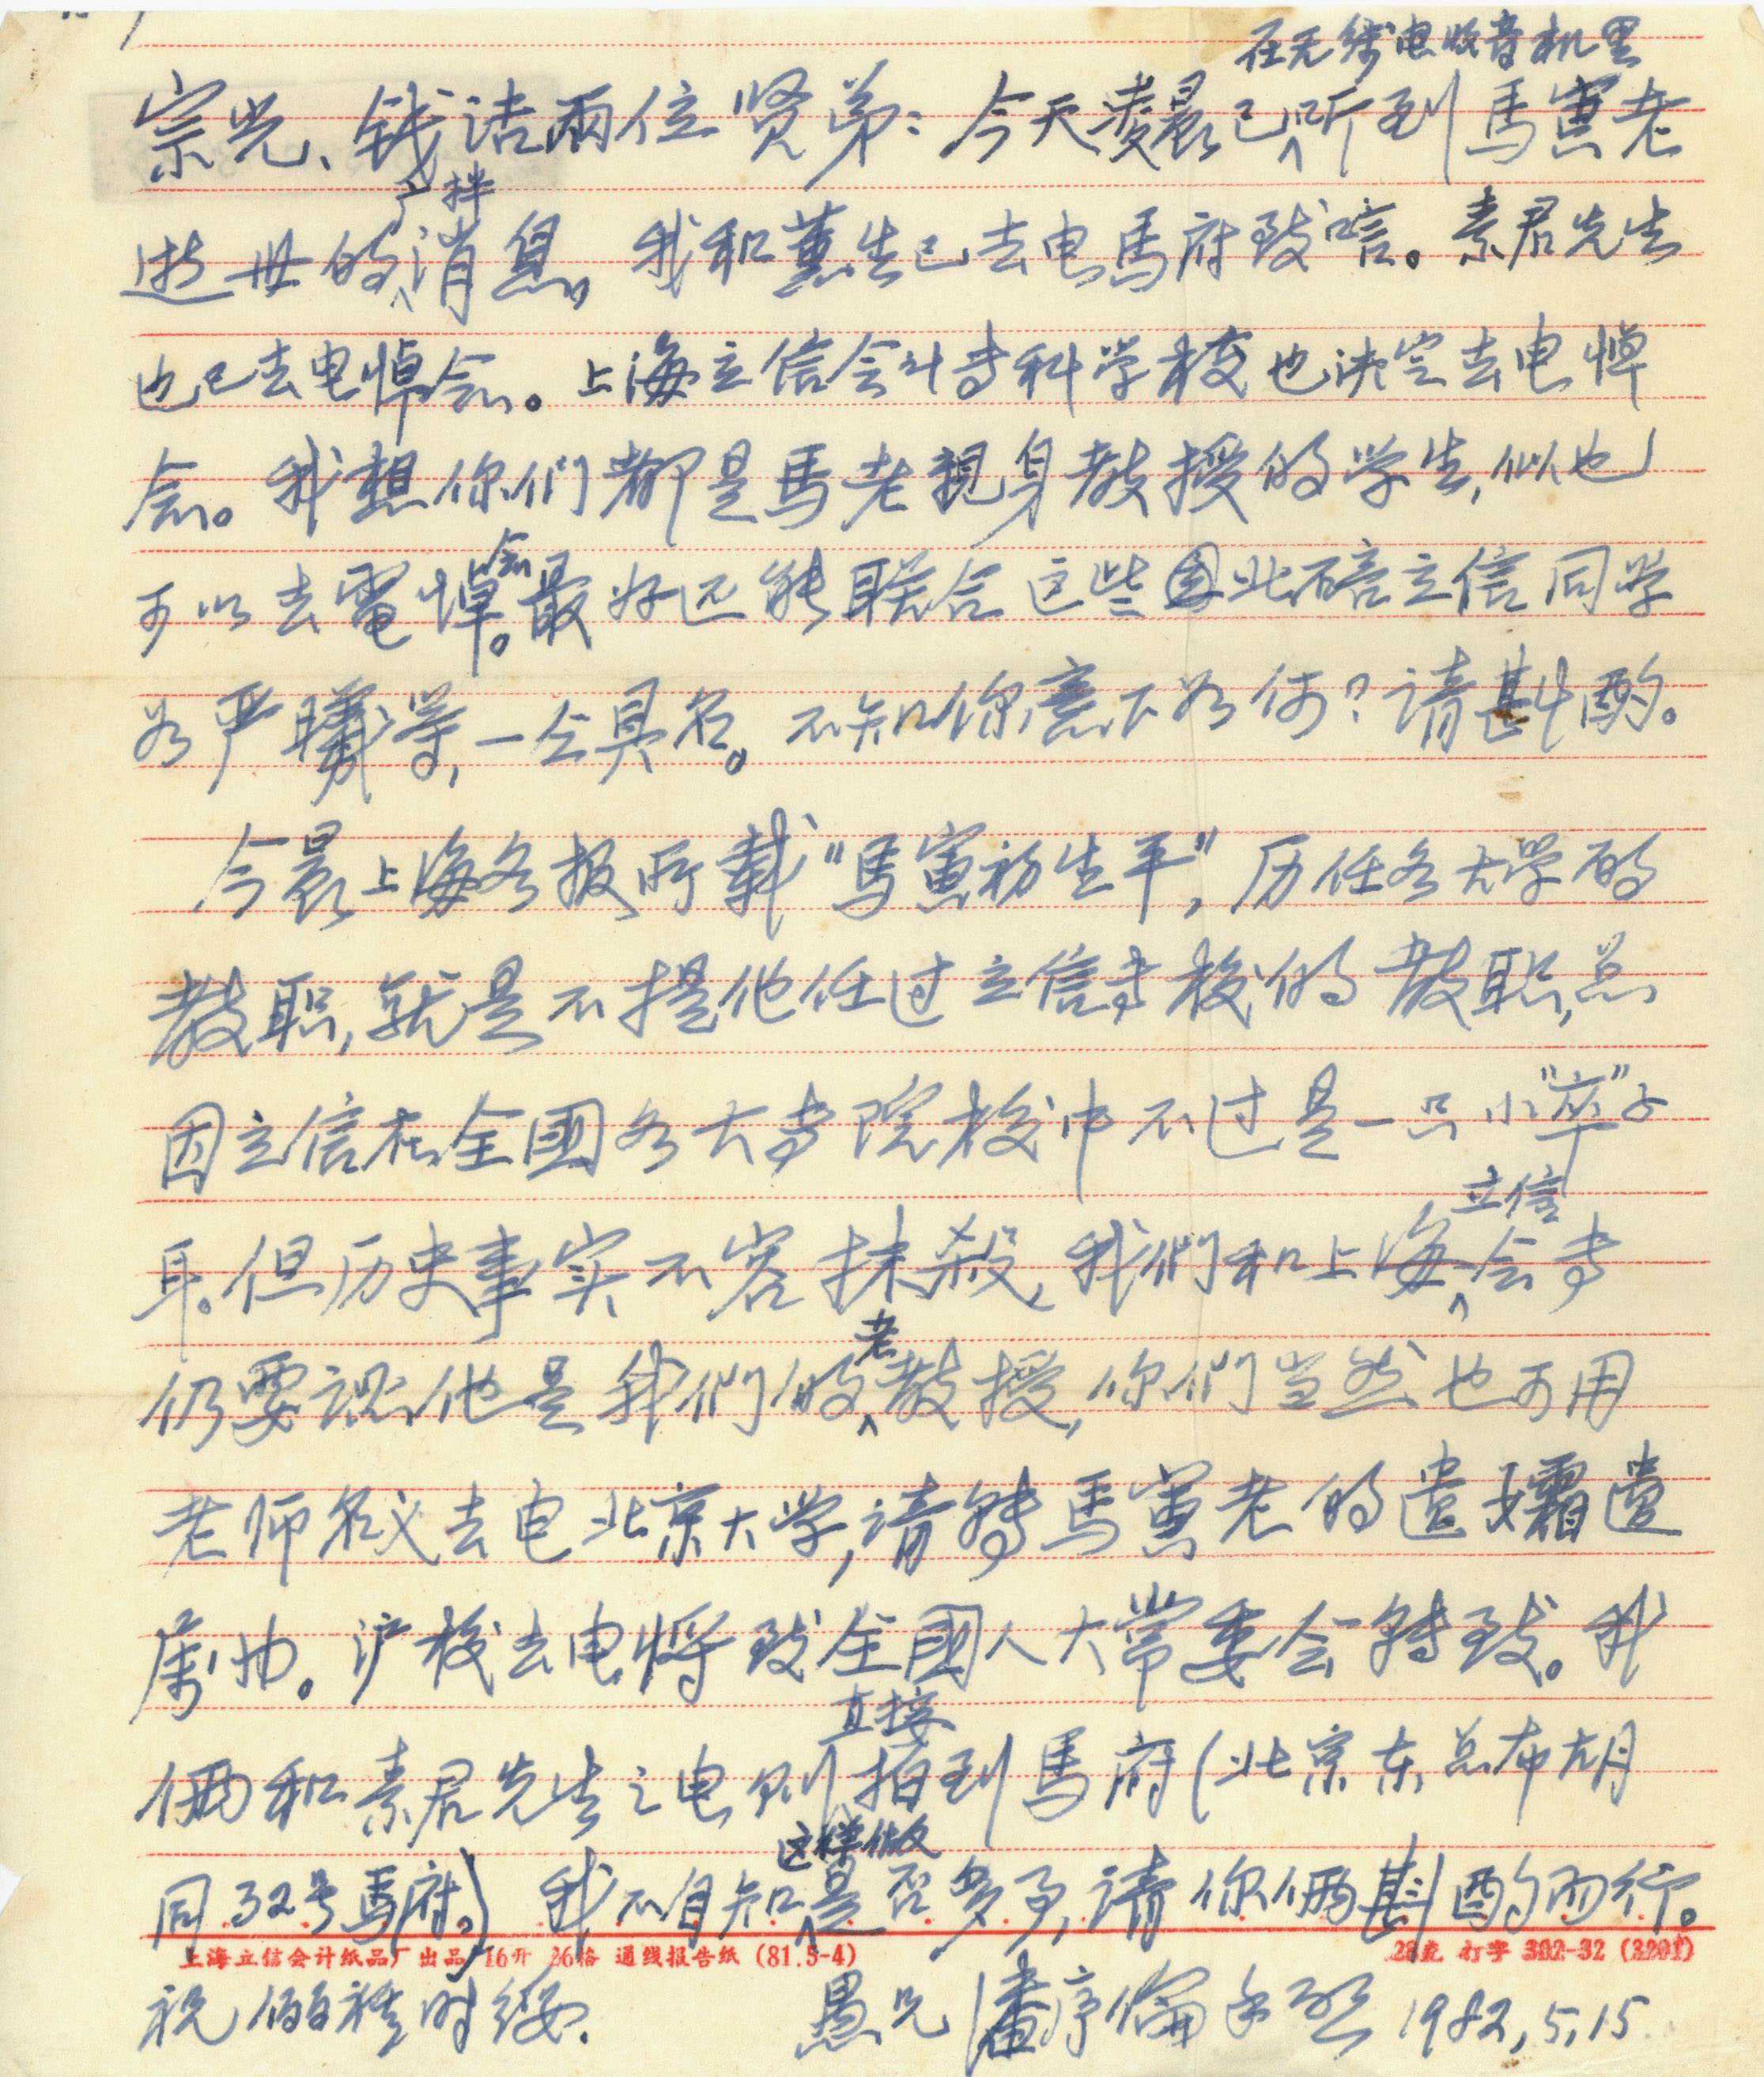 在无线电收音机里
宗光、钱洁两位贤弟：今天凌晨已听到馬寅老
广播
逝世的消息。我和蕙生已去电馬府致唁。素君先生
也已去电悼念。上海立信会计专科学校也决定去电悼
念。我想你们都是馬老親身教授的学生，似也
念
可以去電悼。最好还能联合这些国北碚立信同学
为严曦等，一仝具名。不知你意下为何？请斟酌。
今晨上海各报所載“馬寅初生平”，历任各大学的
教职，就是不提他任过立信专校的教职，总
因立信在全國各大专院校中不过是一只小“卒”子
立信
耳。但历史事实不容抹殺，我們和上海会专
老
仍要认他是我們的教授，你們当然也可用
老师名义去电北京大学，请转馬寅老的遗孀遗
属也。沪校去电将致全國人大常委会转致。我
直接
俩和素君先生之电则拍到馬府（北京东总布胡
这样做
同32号馬府。）我不自知是否多事，请你俩斟酌而行。
上海立信会计纸品厂出品 16开 26格 通线报告纸 (81.5-4)
28克 打字 302-32 (3201)
祝俪祺时绥．
愚兄潘序倫手啓 1982,5,15